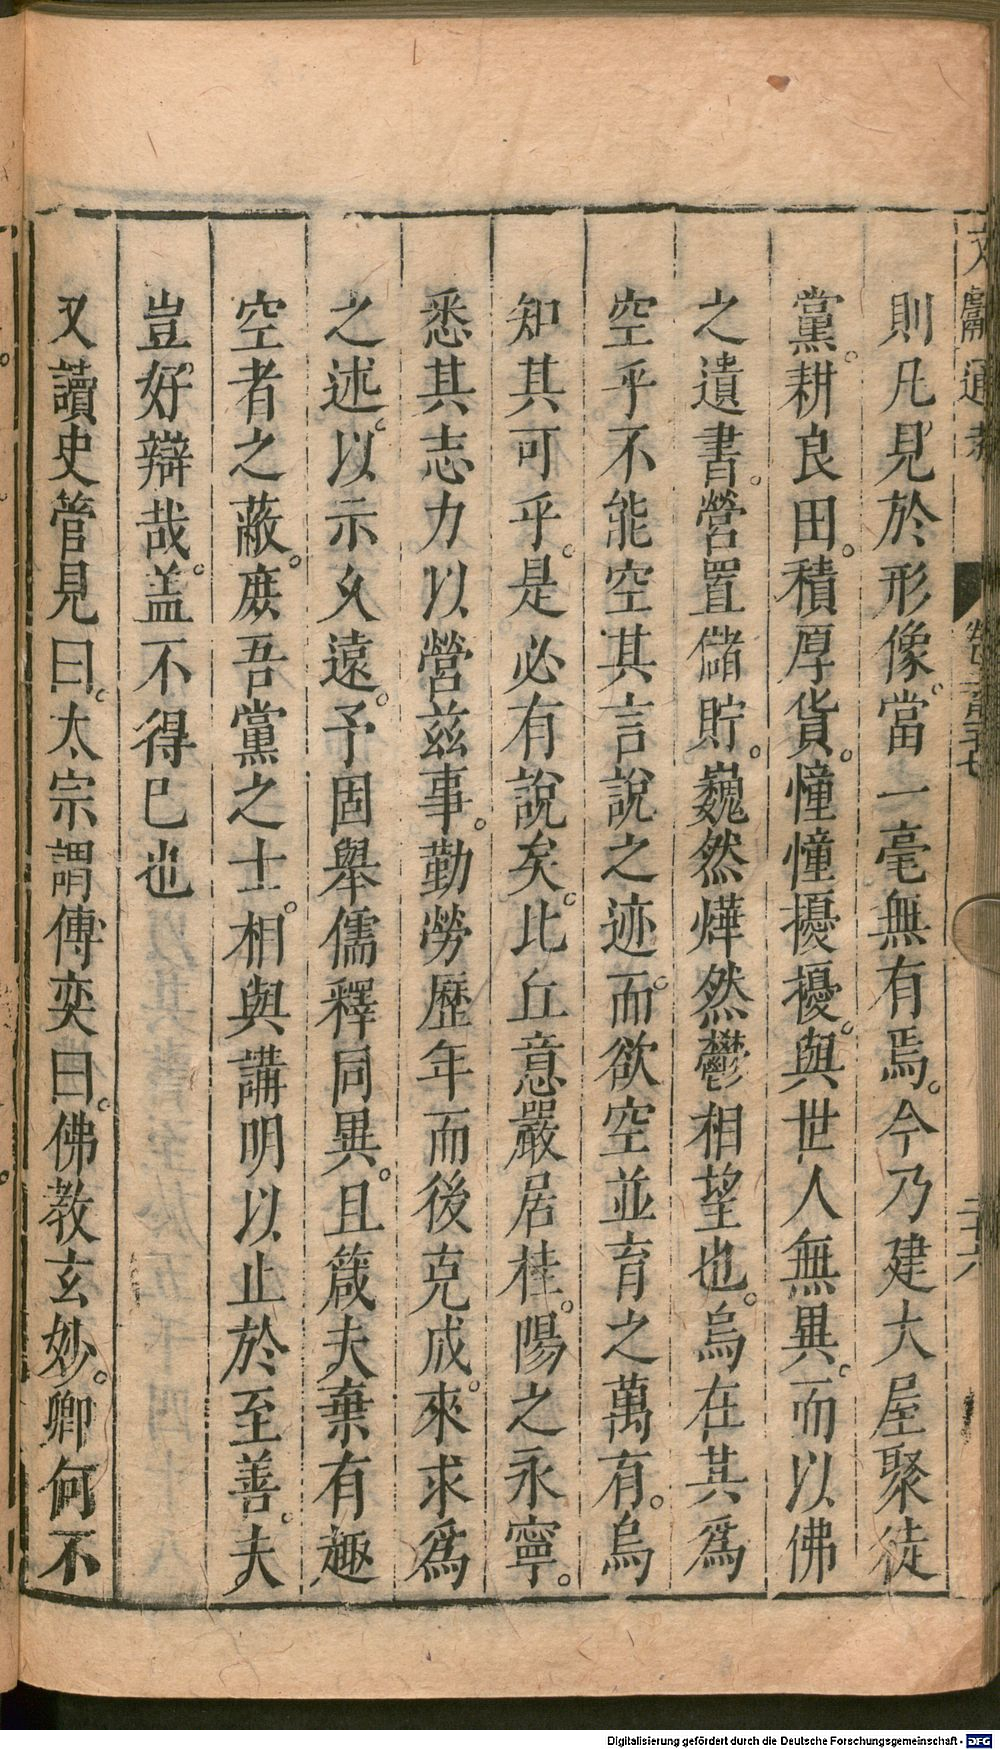 文獻通考
二十六
則凡見於形像當一毫無有焉今乃建大屋聚徒
黨耕良田積厚貨憧憧擾擾與世人無異而以佛
之遺書營置儲貯巍然燁然鬱相望也烏在其爲
空乎不能空其言說之迹而欲空並育之萬有烏
知其可乎是必有說矣比丘意嚴居桂陽之永寧
悉其志力以營茲事勤勞歷年而後克成來求爲
之述以示久遠予固舉儒釋同異且箴夫棄有趣
空者之蔽庶吾黨之士相與講明以止於至善夫
豈好辯哉盖不得已也
又讀史管見曰太宗謂傅奕曰佛教玄妙卿何不
Digitalisierung gefördert durch die Deutsche Forschungsgemeinschaft - DFG